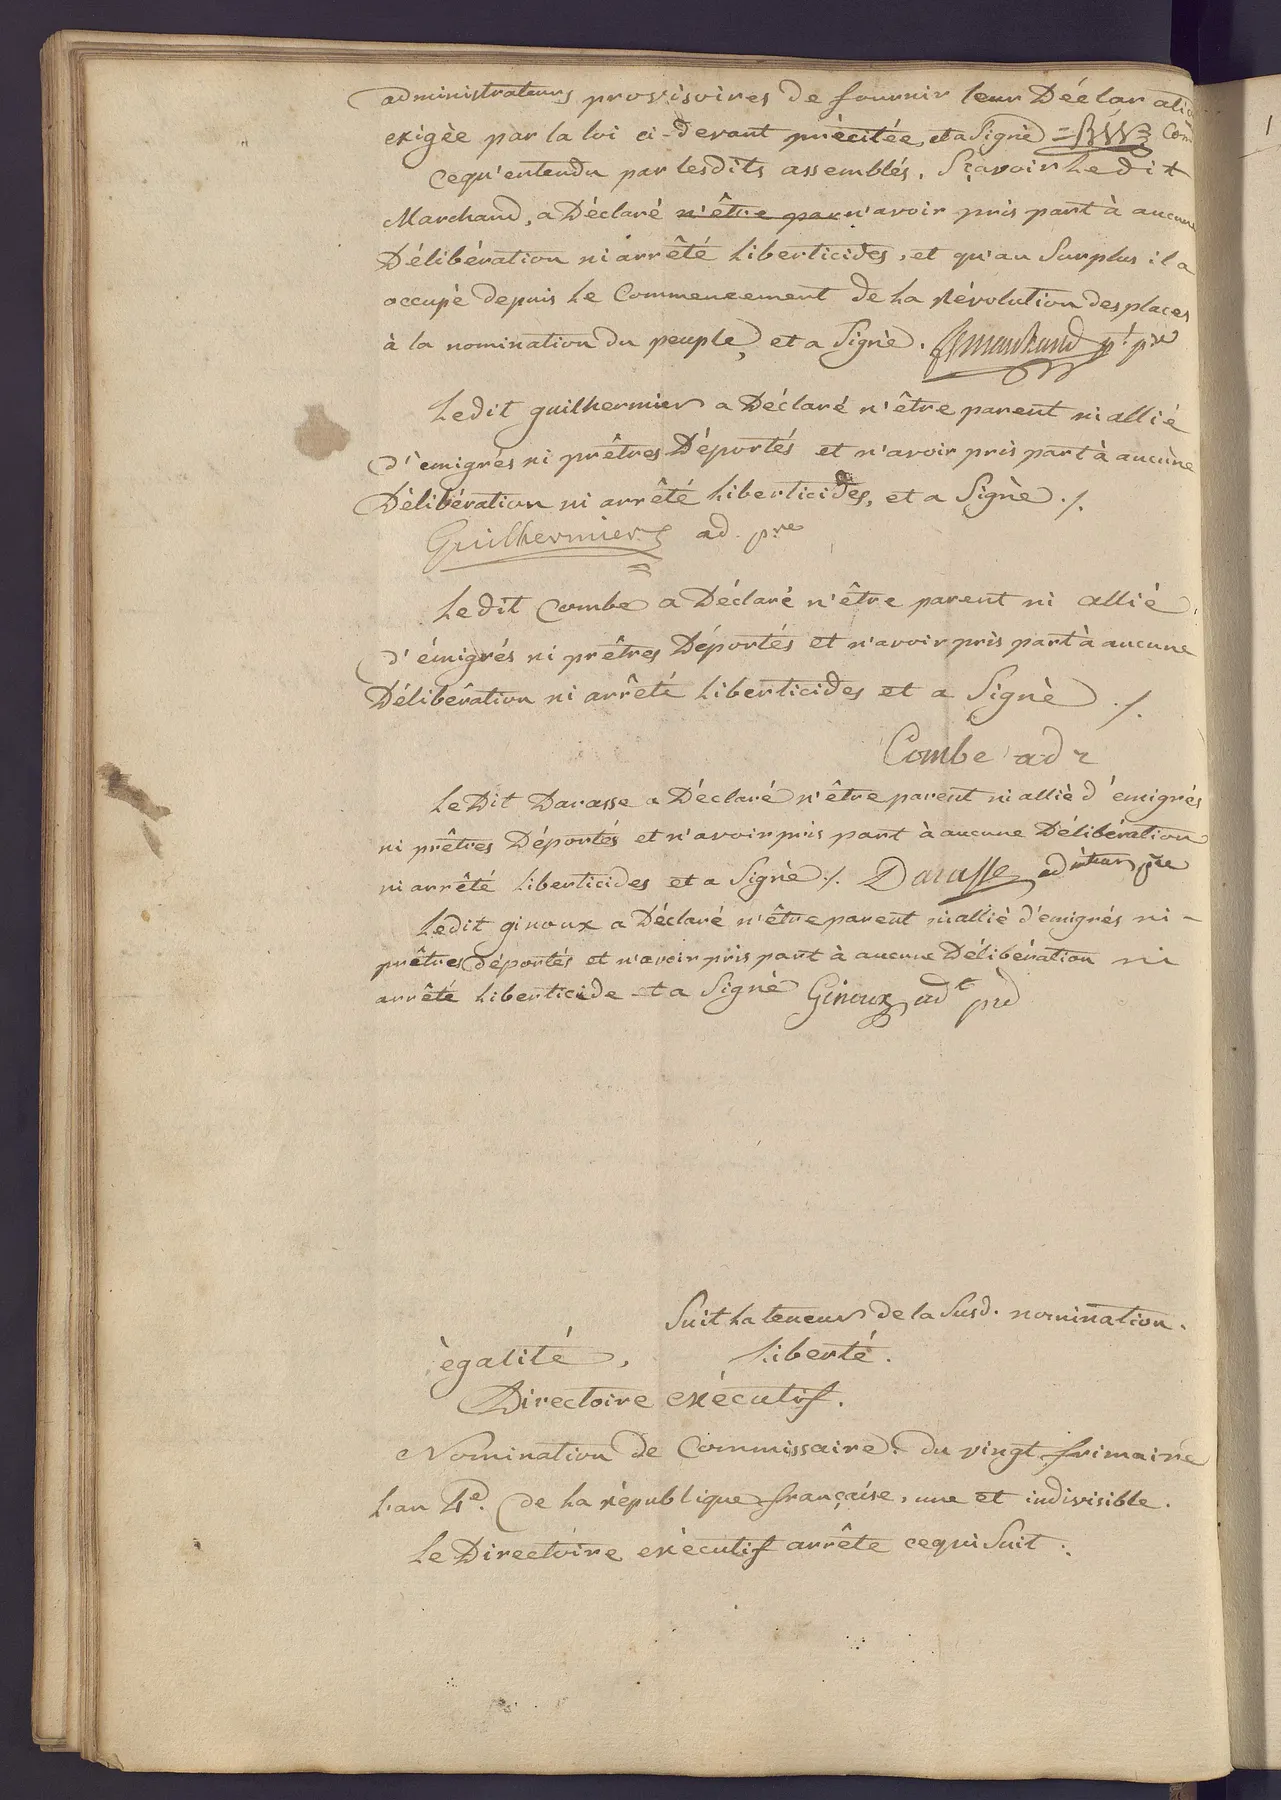 administrateurs provisoires de fournir leur Déclaratio
exigée par la loi ci-devant précitée, et a Signé
cequ'entendu par lesdits assemblés, Sçavoir Ledit
Marchand, a Déclaré n'être par n'avoir pris part à aucune
Délibération ni arrêté Liberticides, et qu'au Surplus il a
occupé depuis Le Commencement de La Révolution des places
à la nomination du peuple, et a Signé.
Ledit guilhermier a Déclaré n'être parent ni allié
d'émigrés ni prêtres Déportés et n'avoir pris part à aucune
Délibération ni arrêté Liberticides, et a Signé ./.
Guilhermier ad. pre
Ledit Combe a Déclaré n'être parent ni allié
d'émigrés ni prêtres Déportés et n'avoir pris part à aucune
Délibération ni arrêté Liberticides et a Signé ./.
Combe adr
Le Dit Darasse a Déclaré n'être parent ni allié d'émigrés
ni prêtres Déportés et n'avoir pris part à aucune Délibération
ni arrêté Liberticides et a Signé ./. Darasse
Ledit ginoux a Déclaré n'être parent ni allié d'émigrés ni -
prêtres déportés et n'avoir pris part à aucune Délibération ni
arrêté Liberticide et a Signé Ginoux adt
Suit La teneur de la Susd. nomination.
égalité, Liberté.
Directoire exécutif.
Nomination de Commissaire. du vingt frimaire
L'an 4e. de La république française, une et indivisible.
Le Directoire exécutif arrête cequi Suit.